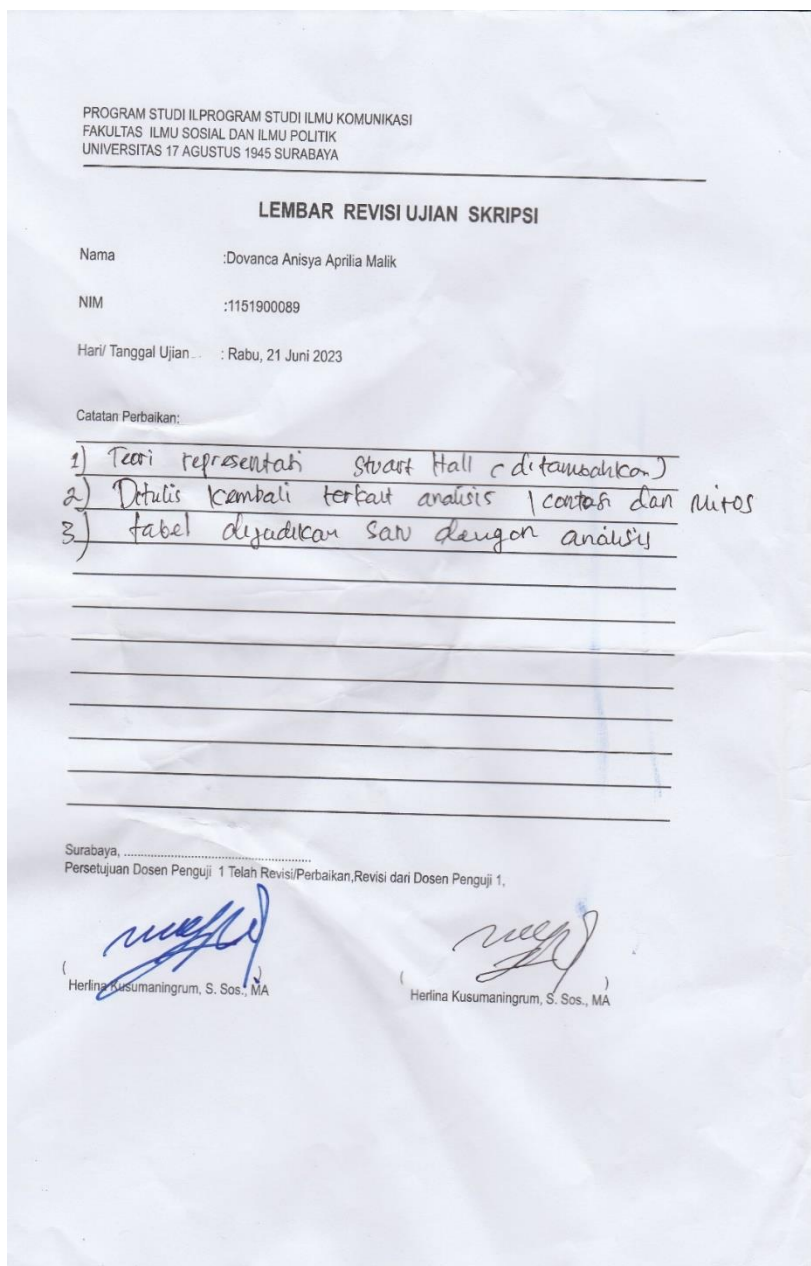 PROGRAM STUDI ILPROGRAM STUDI ILMU KOMUNIKASI
FAKULTAS ILMU SOSIAL DAN ILMU POLITIK
UNIVERSITAS 17 AGUSTUS 1945 SURABAYA
LEMBAR REVISI UJIAN SKRIPSI
Nama :Dovanca Anisya Aprilia Malik
NIM :1151900089
Hari/ Tanggal Ujian : Rabu, 21 Juni 2023
Catatan Perbaikan:
1) Teori representasi Stuart Hall (ditambahkan)
2) Ditulis kembali terkait analisis dan mitos
3) tabel dijadikan satu dengan analisis
Surabaya, ......................................................
Persetujuan Dosen Penguji 1 Telah Revisi/Perbaikan,Revisi dari Dosen Penguji 1,
( ) ( )
Herlina Kusumaningrum, S. Sos., MA Herlina Kusumaningrum, S. Sos., MA